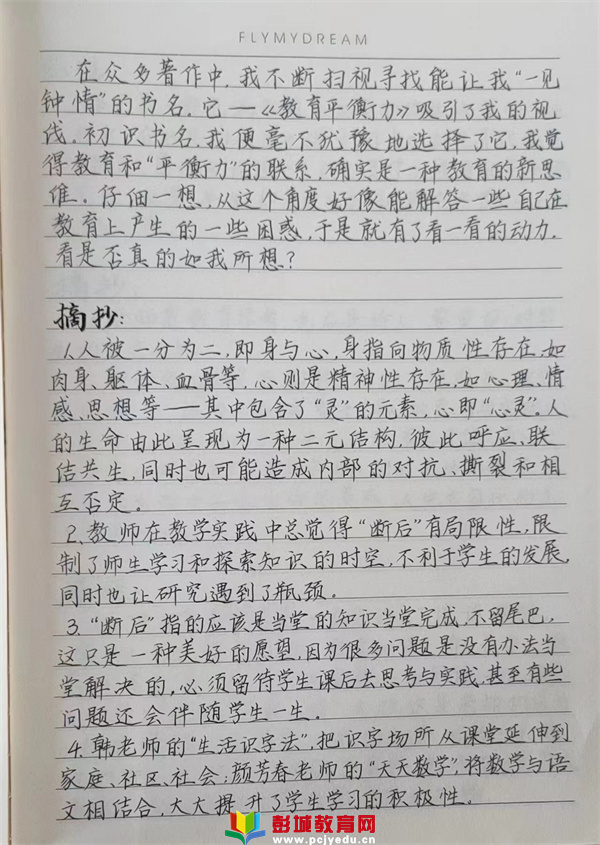 FLYMYDREAM
在众多著作中，我不断扫视寻找能让我“一见
钟情”的书名，它——《教育平衡力》吸引了我的视
线，初识书名，我便毫不犹豫地选择了它，我觉
得教育和“平衡力”的联系，确实是一种教育的新思
维。仔细一想，从这个角度好像能解答一些自己在
教育上产生的一些困惑，于是就有了看一看的动力，
看是否真的如我所想？
摘抄：
1、人被一分为二，即身与心，身指向物质性存在，如
肉身、躯体、血骨等，心则是精神性存在，如心理、情
感、思想等——其中包含了“灵”的元素，心即“心灵”。人
的生命由此呈现为一种二元结构，彼此呼应、联
结共生，同时也可能造成内部的对抗、撕裂和相
互否定。
2、教师在教学实践中总觉得“断后”有局限性，限
制了师生学习和探索知识的时空，不利于学生的发展，
同时也让研究遇到了瓶颈。
3、“断后”指的应该是当堂的知识当堂完成，不留尾巴，
这只是一种美好的愿望，因为很多问题是没有办法当
堂解决的，必须留待学生课后去思考与实践，甚至有些
问题还会伴随学生一生。
4、韩老师的“生活识字法”，把识字场所从课堂延伸到
家庭、社区、社会；颜芳春老师的“天天数学”，将数学与语
文相结合，大大提升了学生学习的积极性。
彭城教育网
www.pcjyedu.cn